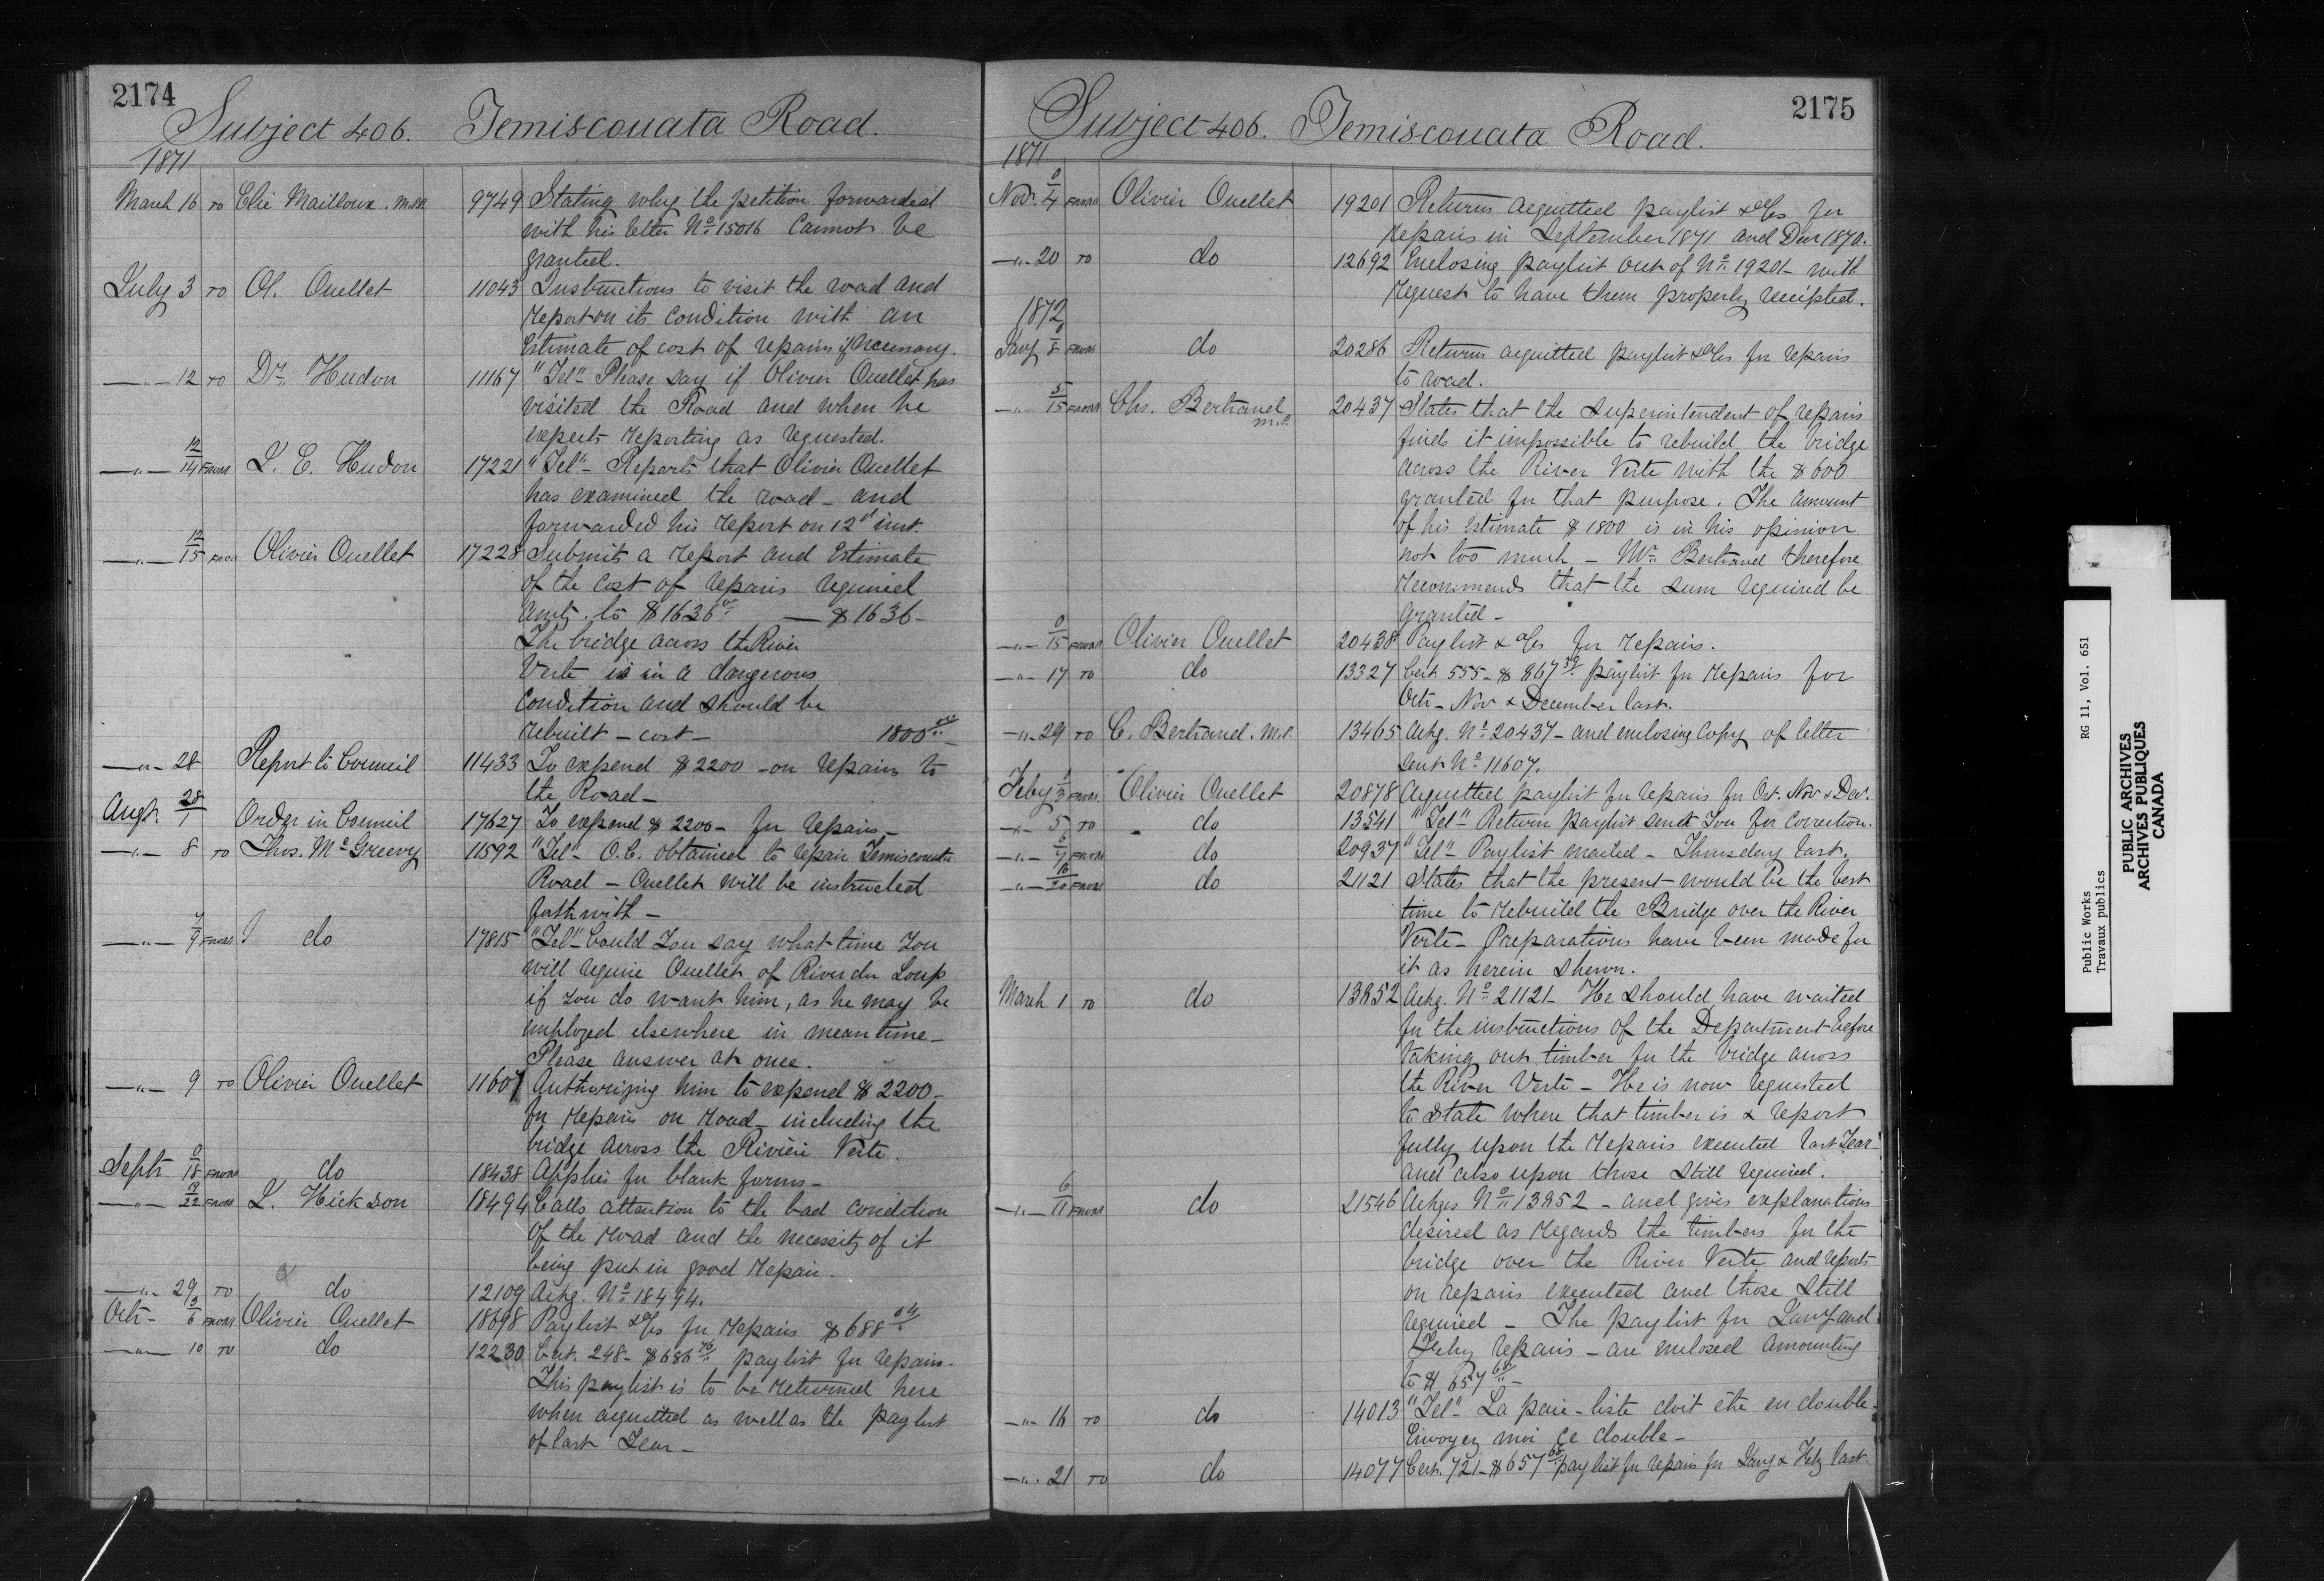 2174
Subject 406. Temiscouata Road.
1871
March 16 TO Elie Mailloux. M.P. 9749 Stating why the petition forwarded
with his letter No. 15016 Cannot be
granted.
July 3 TO Ol. Ouellet 11043 Instructions to visit the road and
report on its condition with an
Estimate of cost of repairs if necessary.
—"— 12 TO Dr. Hudon 11167 "Tel" Please say if Olivier Ouellet has
visited the Road and when he
expects reporting as requested.
—"— 12/14 FROM L. E. Hudon 17221 "Tel" - Reports that Olivier Ouellet
has examined the road - and
forwarded his report on 12th inst.
—"— 12/15 FROM Olivier Ouellet 17228 Submits a report and Estimate
of the cost of repairs required
amtg. to $1636 — $1636-
The bridge across the River
Verte is in a dangerous
Condition and should be
rebuilt - cost - 1800
—"— 28 Report to Council 11433 To expend $2200 - on repairs to
the Road -
Augt. 28/1 Order in Council 17627 To expend $2200 - for repairs -
—"— 8 TO Thos. McGreevy 11592 "Tel" - O.C. obtained to repair Temiscouata
Road - Ouellet will be instructed
forthwith -
—"— 7/9 FROM do 17815 "Tel" - Could you say what time you
will require Ouellet of River du Loup
if you do want him, as he may be
employed elsewhere in meantime -
Please answer at once.
—"— 9 TO Olivier Ouellet 11607 Authorizing him to expend $2200 -
for repairs on road - including the
bridge across the Rivière Verte.
Septr 18 FROM do 18438 Applies for blank forms -
—"— 19/22 FROM L. Hickson 18494 Calls attention to the bad condition
of the road and the necessity of it
being put in good repair.
—"— 29 TO do 12109 Ackg. No. 18494.
Octr - 5/6 FROM Olivier Ouellet 18698 Paylist & a/cs for repairs $688
—"— 10 TO do 12230 Cert. 248 - $686 76 paylist for repairs.
This paylist is to be returned here
when acquitted as well as the paylist
of last Year -
2175
Subject 406. Temiscouata Road.
1871
Nov. 0/4 FROM Olivier Ouellet 19201 Returns acquitted paylist & a/cs for
repairs in September 1871 and Decr 1870.
—"— 20 TO do 12692 Enclosing paylist out of No. 19201 - with
request to have them properly receipted.
1872
Jany 0/8 FROM do 20286 Returns acquitted paylist & a/cs for repairs
to road.
—"— 5/15 FROM Chs. Bertrand M.P. 20437 States that the Superintendent of repairs
finds it impossible to rebuild the bridge
across the River Verte with the $600
granted for that purpose. The amount
of his Estimate $1800 is in his opinion
not too much - Mr. Bertrand therefore
recommends that the sum required be
granted -
—"— 0/15 FROM Olivier Ouellet 20438 Paylist & a/cs for repairs.
—"— 17 TO do 13327 Cert. 555 - $867 39 paylist for repairs for
Octr - Nov & December last.
—"— 29 TO C. Bertrand. M.P. 13465 Ackg. No. 20437 - and enclosing Copy of letter
sent No. 11607.
Feby 3 FROM Olivier Ouellet 20878 Acquitted paylist for repairs for Oct. Nov & Dec.
—"— 5 TO do 13541 "Tel" Return paylist sent you for correction.
—"— 6/7 FROM do 20937 "Tel" Paylist mailed - Thursday last.
—"— 16/20 FROM do 21121 States that the present would be the best
time to rebuild the Bridge over the River
Verte - Preparations have been made for
it as herein shewn.
March 1 TO do 13852 Ackg. No. 21121 - He should have waited
for the instructions of the Department before
taking out timber for the bridge across
the River Verte - He is now requested
to state where that timber is & report
fully upon the repairs executed last Year -
and also upon those still required.
—"— 6/11 FROM do 21546 Ackgs No. 13852 - and gives explanations
desired as regards the timbers for the
bridge over the River Verte and reports
on repairs executed and those still
required - The paylist for Jany and
Feby repairs - are enclosed amounting
to $657 60 -
—"— 16 TO do 14013 "Tel" - La paie-liste doit être en double.
Envoyez moi ce double -
—"— 21 TO do 14077 Cert. 721 - $657 60 paylist for repairs for Jany & Feby last.
Public Works RG 11, Vol. 651
Travaux publics
PUBLIC ARCHIVES
ARCHIVES PUBLIQUES
CANADA